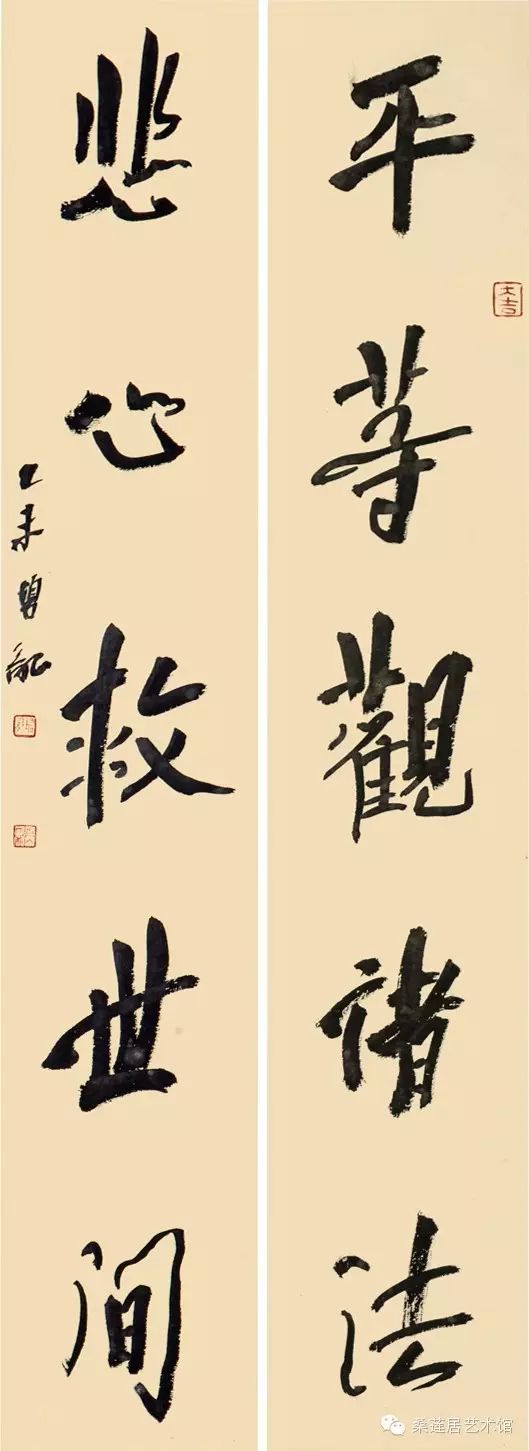 平等觀諸法
悲心救世間
乙未
大吉
桑莲居艺术馆